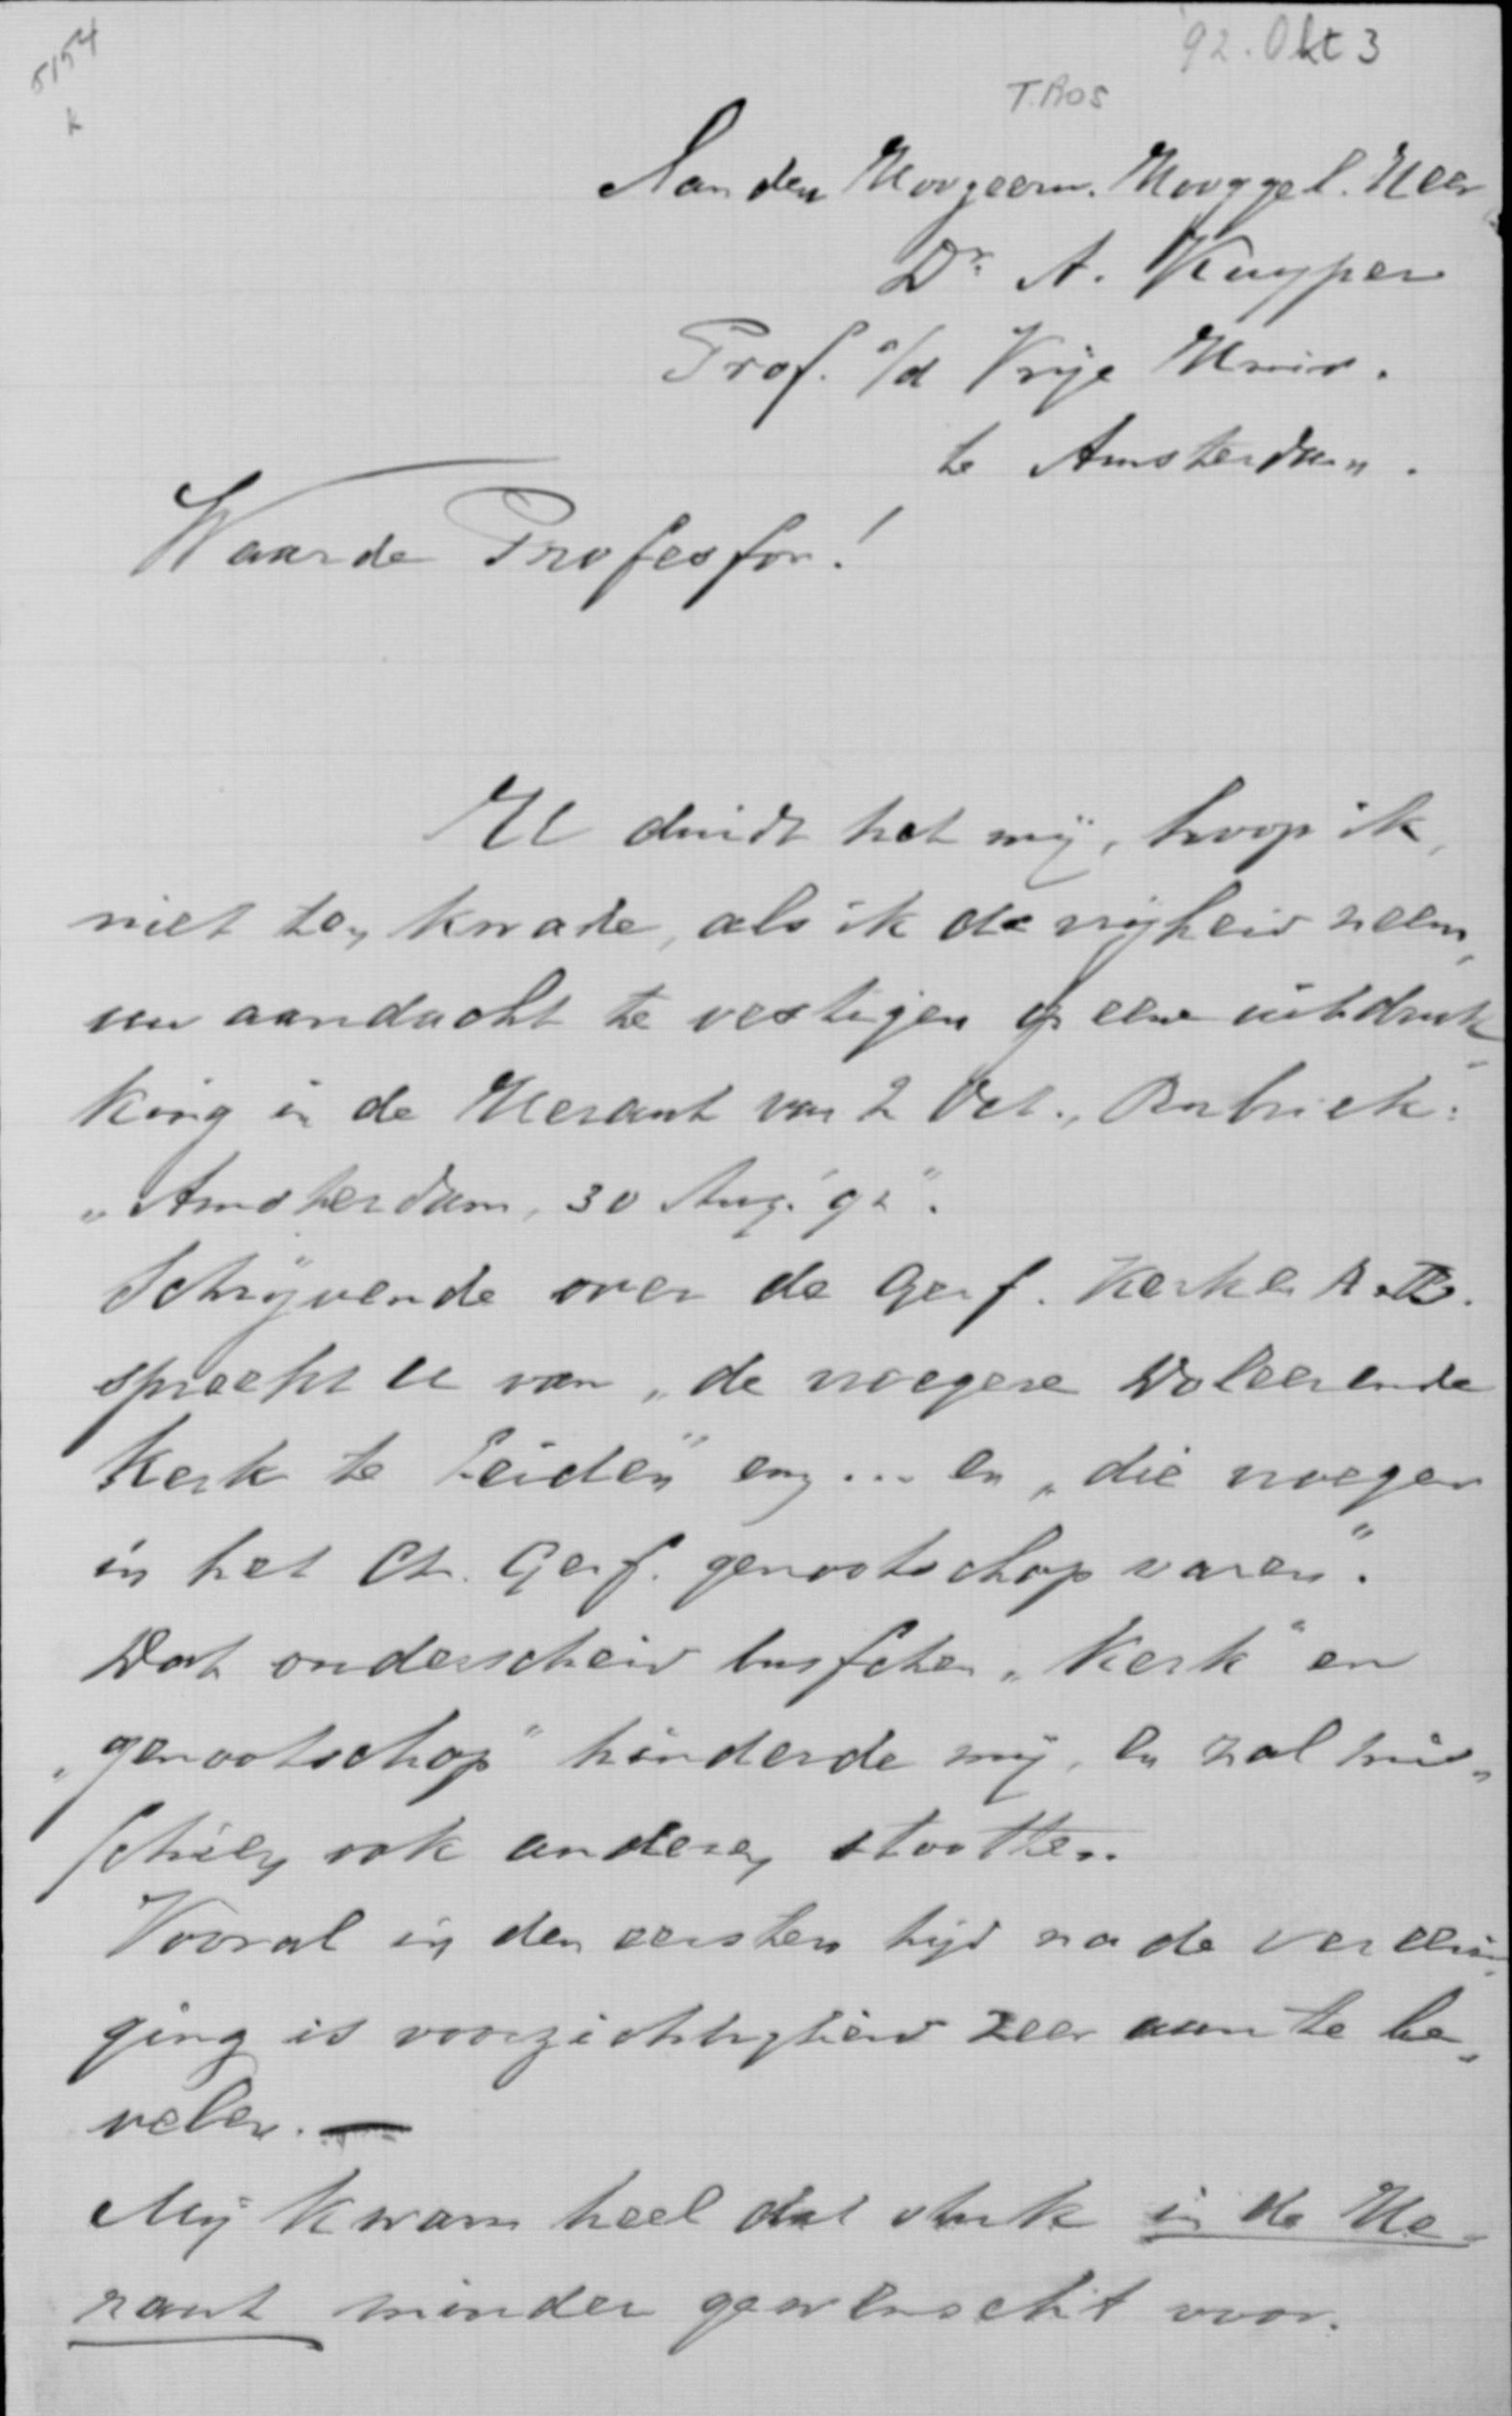 5154
k
'92. Okt 3
T. Bos
Aan den Hoogeerw. Hooggel. Heer
Dr. A. Kuyper
Prof. a/d Vrije Univ.
te Amsterdam.
Waarde Professor!
U duidt het mij, hoop ik,
niet ten kwade, als ik de vrijheid neem,
uw aandacht te vestigen op eene uitdruk„
king in de Heraut van 2 Oct., Rubriek:
„Amsterdam, 30 Aug. '92".
Schrijvende over de Geref. Kerk
spreekt U van „de vroegere Doleerende
Kerk te Leiden" enz... en „die vroeger
in het Chr. Geref. genootschap waren".
Dat onderscheid tusschen „Kerk" en
„genootschap" hinderde mij, en zal mis„
schien ook anderen stooten.
Vooral in den eersten tijd na de vereeni„
ging is voorzichtigheid zeer aan te be„
velen. —
Mij kwam heel dat stuk in de He„
raut minder gewenscht voor.